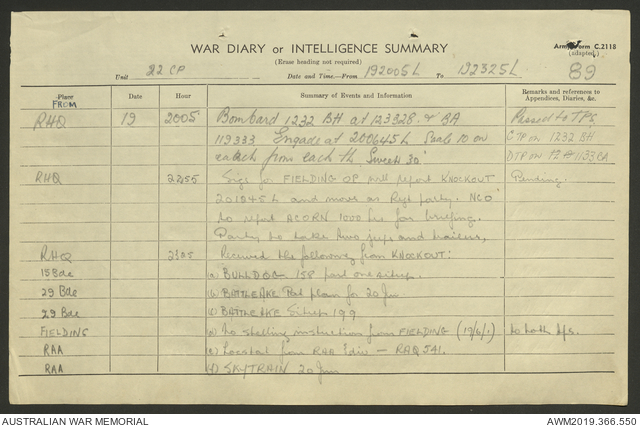 WAR DIARY or INTELLIGENCE SUMMARY
Army Form C.2118
(Erase heading not required)
(adapted)
Unit 22 CP Date and Time.—From 192005L To 192325L 89
Place Date Hour Summary of Events and Information Remarks and references to Appendices, Diaries, &c.
FROM
RHQ 19 2005 Bombard 1232 BH at 123328 & BA Passed to TPS
119333 Engage at 200645L Scale 10 on CTP on 1232 BH
each from each th. Sweep 30' DTP on 1133 BA
RHQ 2255 Sigs for FIELDING OP will report KNOCKOUT Pending.
201845L and move as Regt party. NCO
to report ACORN 1000 hrs for briefing.
Party to take two jeeps and trailers.
RHQ Received the following from KNOCKOUT:
15Bde (a) BULLDOG 158 past one sitrep.
29 Bde (b) BATTLEAXE Ptl plan for 20 Jun
29 Bde (c) BATTLEAXE Sitrep 199
FIELDING (d) No shelling instruction from FIELDING (19/6/1) to both tps.
RAA (e) Locstat from RAA 1 div — RAQ 541.
RAA (f) SKYTRAIN 20 Jun
AUSTRALIAN WAR MEMORIAL AWM2019.366.550